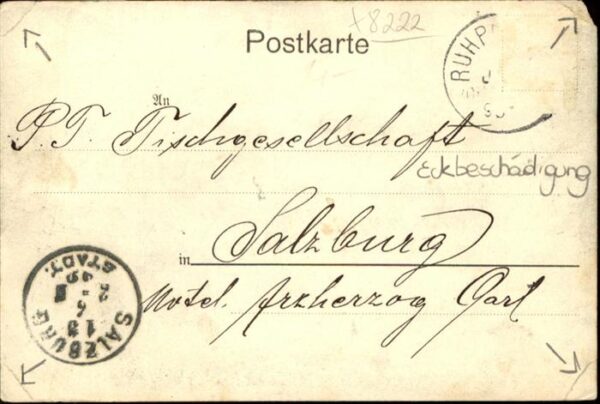 8222
Postkarte
RUHP
An
P.T. Tischgesellschaft
Eckbeschädigung
in Salzburg
Hotel Erzherzog Carl
SALZBURG
STADT.